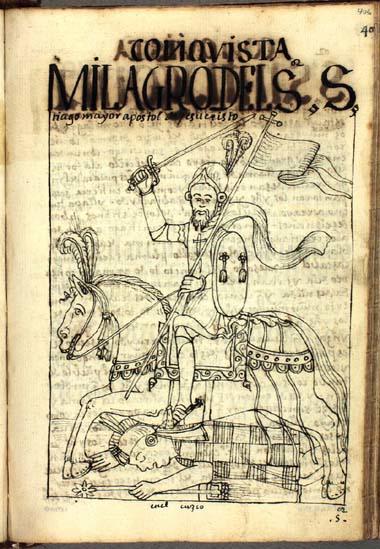 406
40
CONQVISTA
MILAGRO DEL S. S
tiago mayor apostol de jesucristo
enel cuzco
.S.